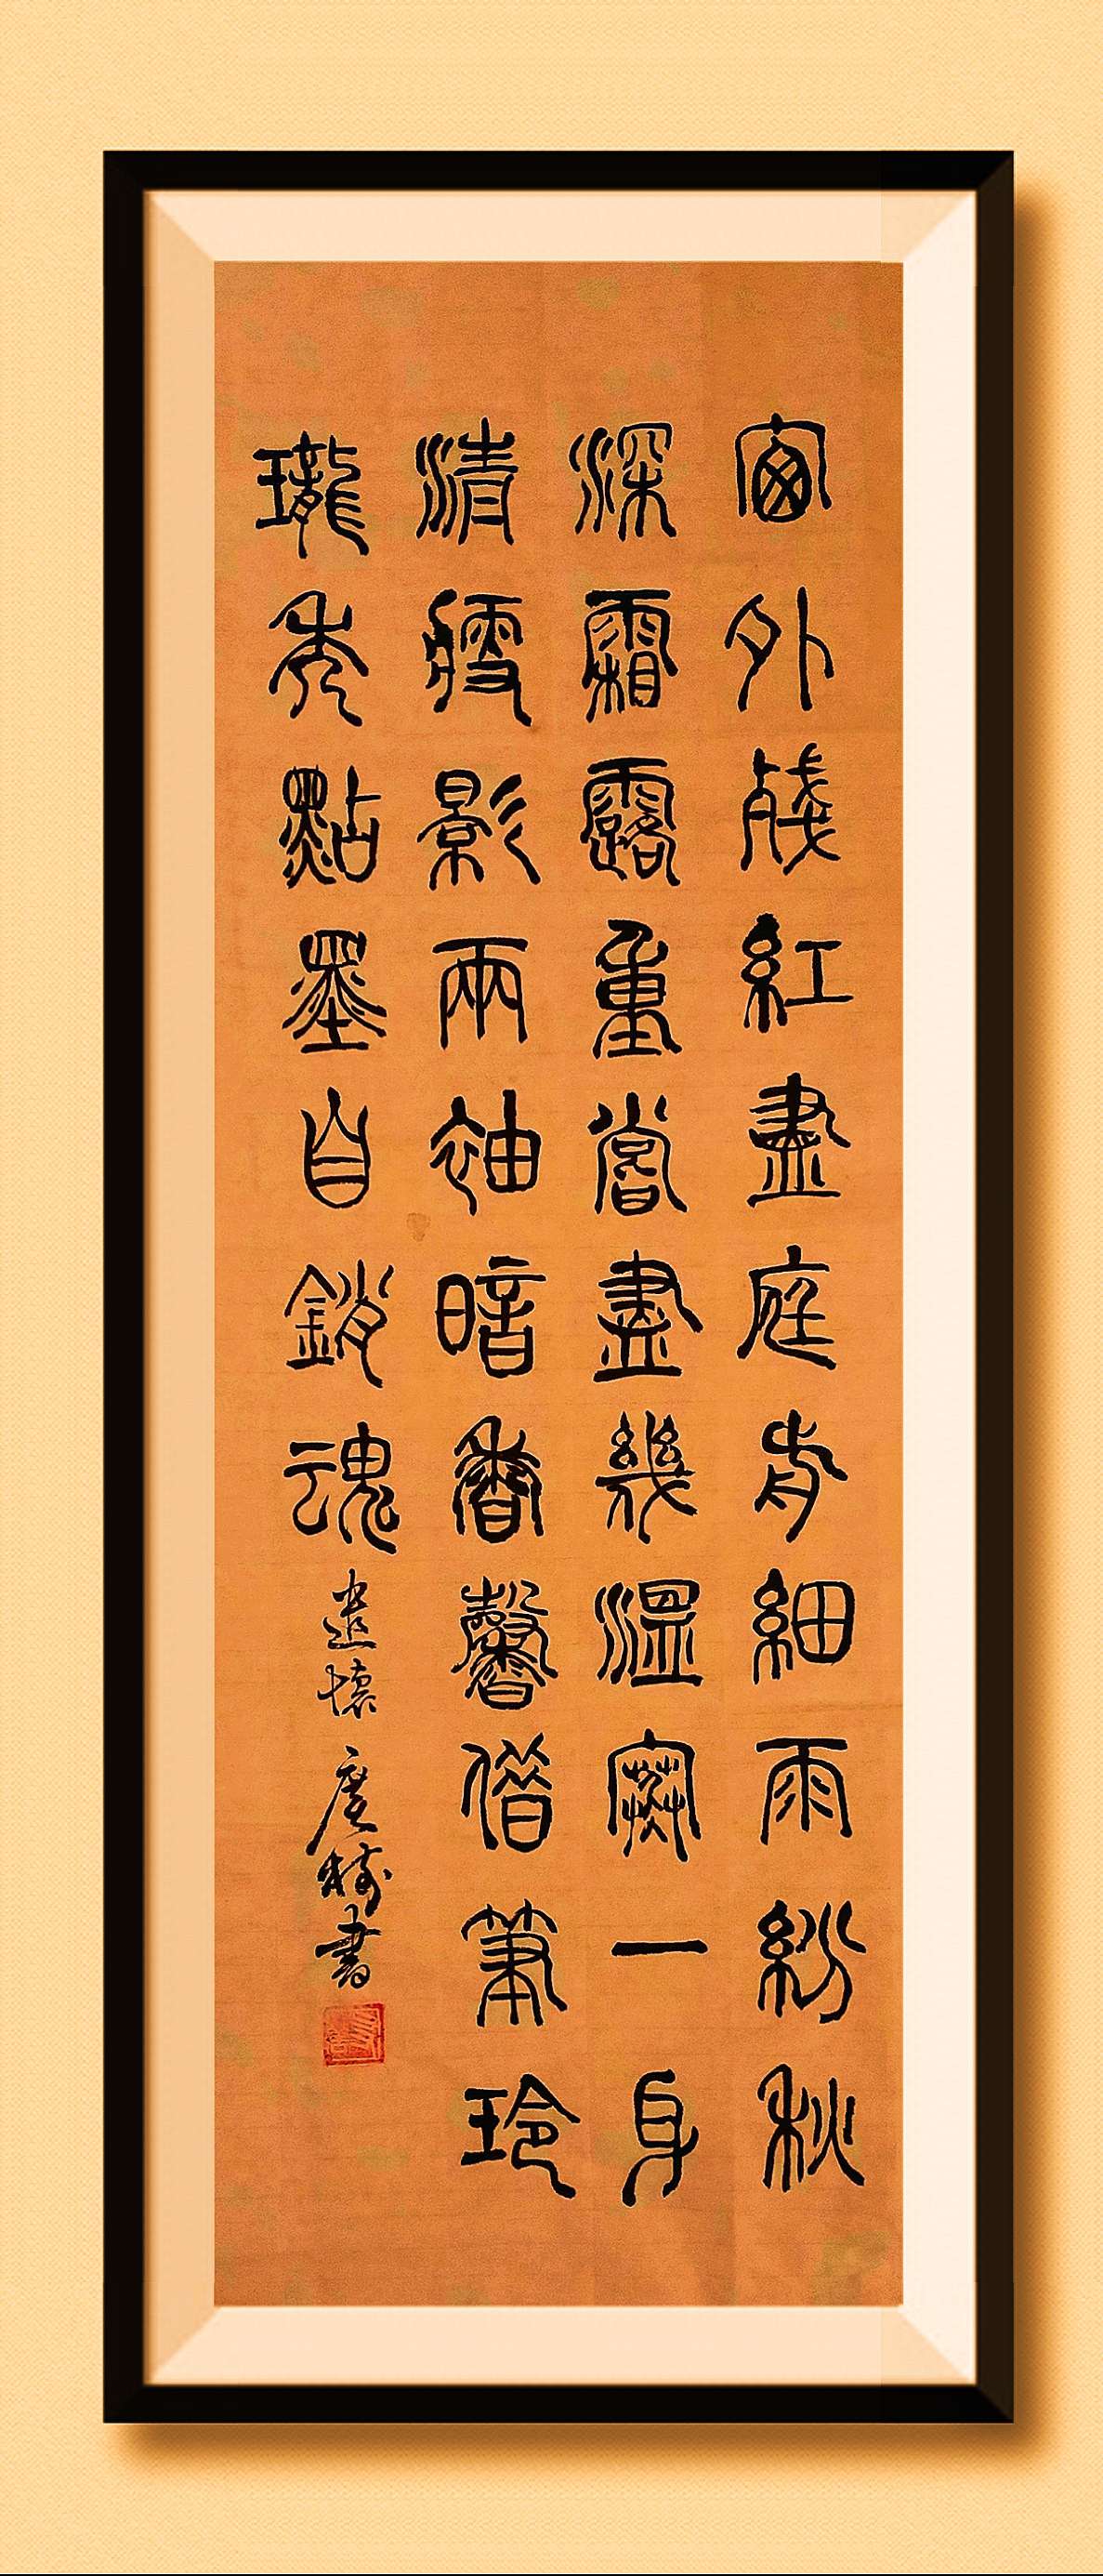 窗外殘紅盡庭前細雨紛秋
深霜露重嘗盡幾溫寒一身
清瘦影兩袖暗香馨借筆玲
瓏秀點墨自銷魂 遣懷 慶樹書